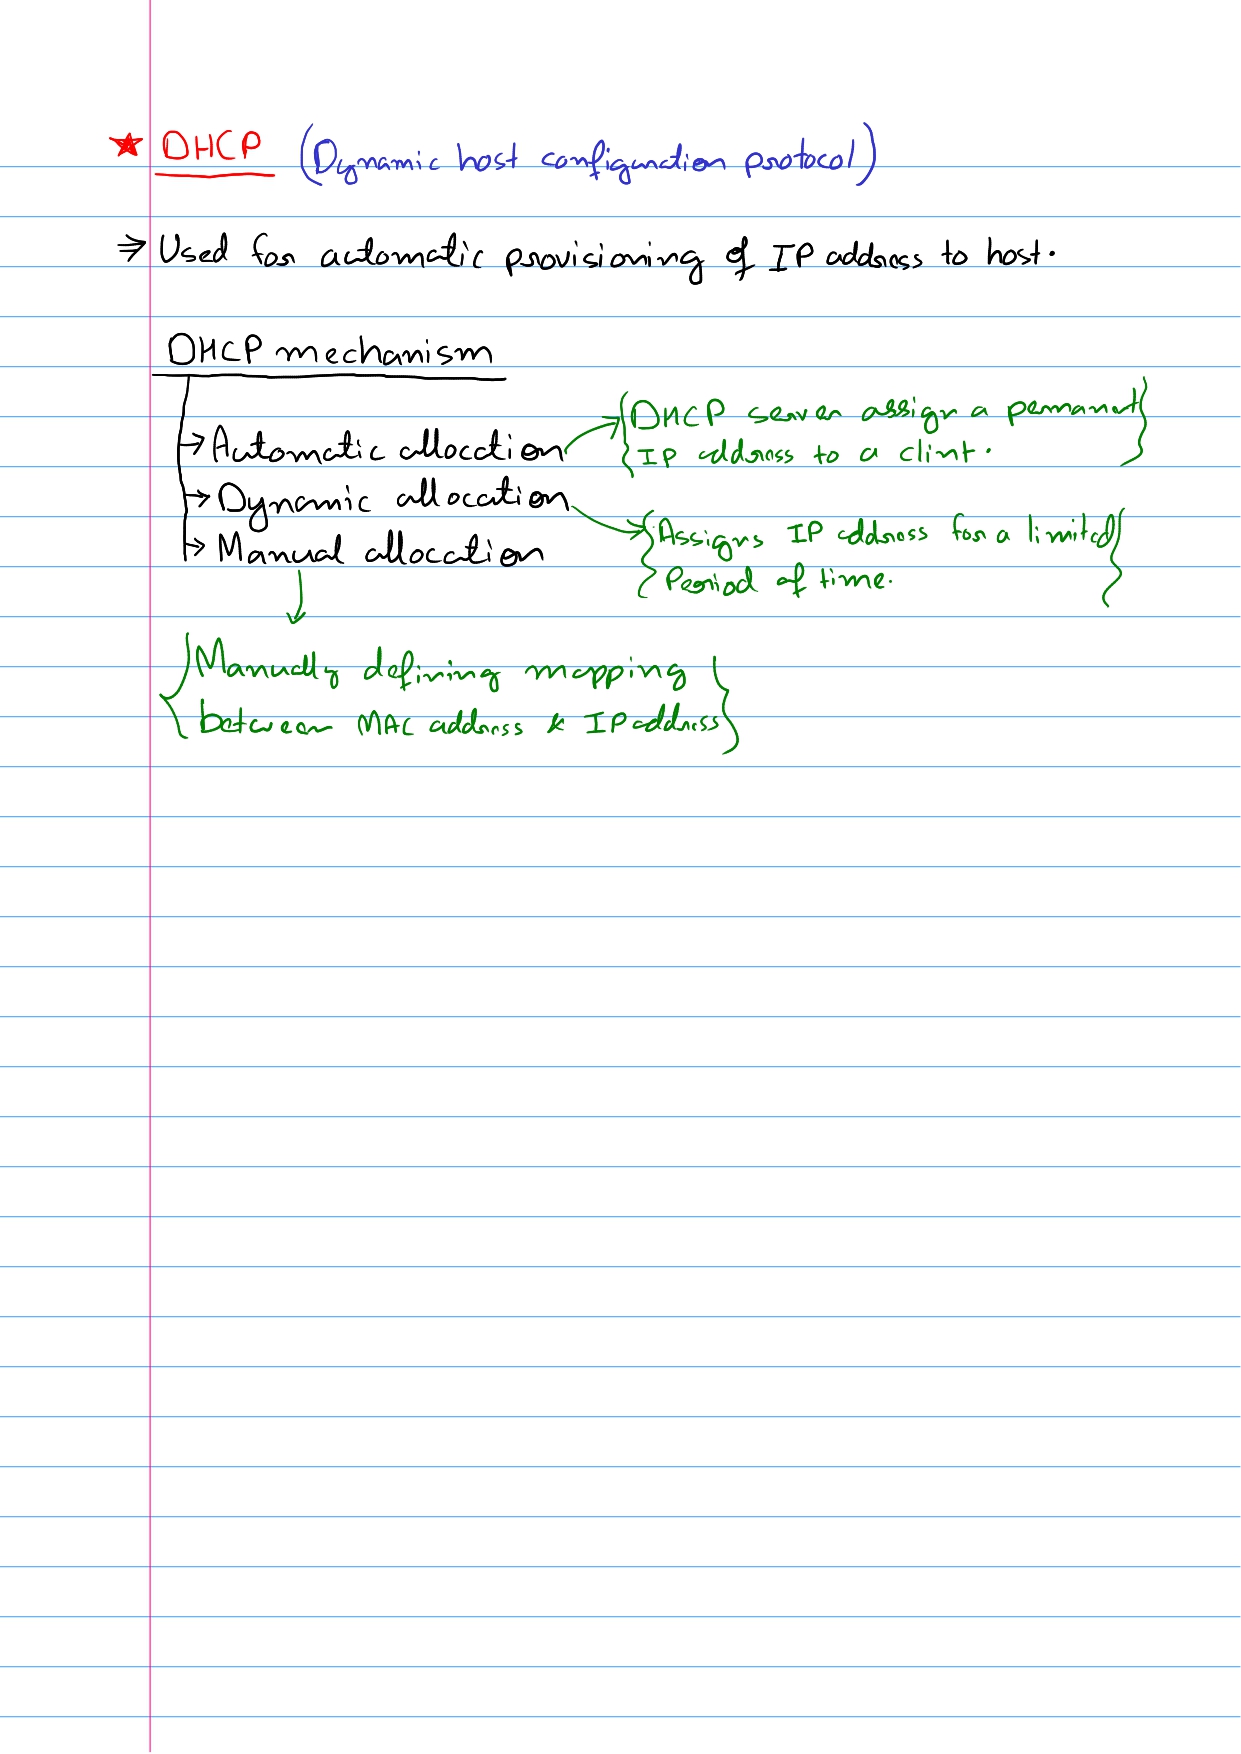 ★ DHCP (Dynamic host configuration protocol)
⇒ Used for automatic provisioning of IP address to host.
DHCP mechanism
→ Automatic allocation → {DHCP server assign a permanant
IP address to a clint.}
→ Dynamic allocation → {Assigns IP address for a limited
Period of time.}
→ Manual allocation
↓
{Manually defining mapping
between MAC address & IP address}